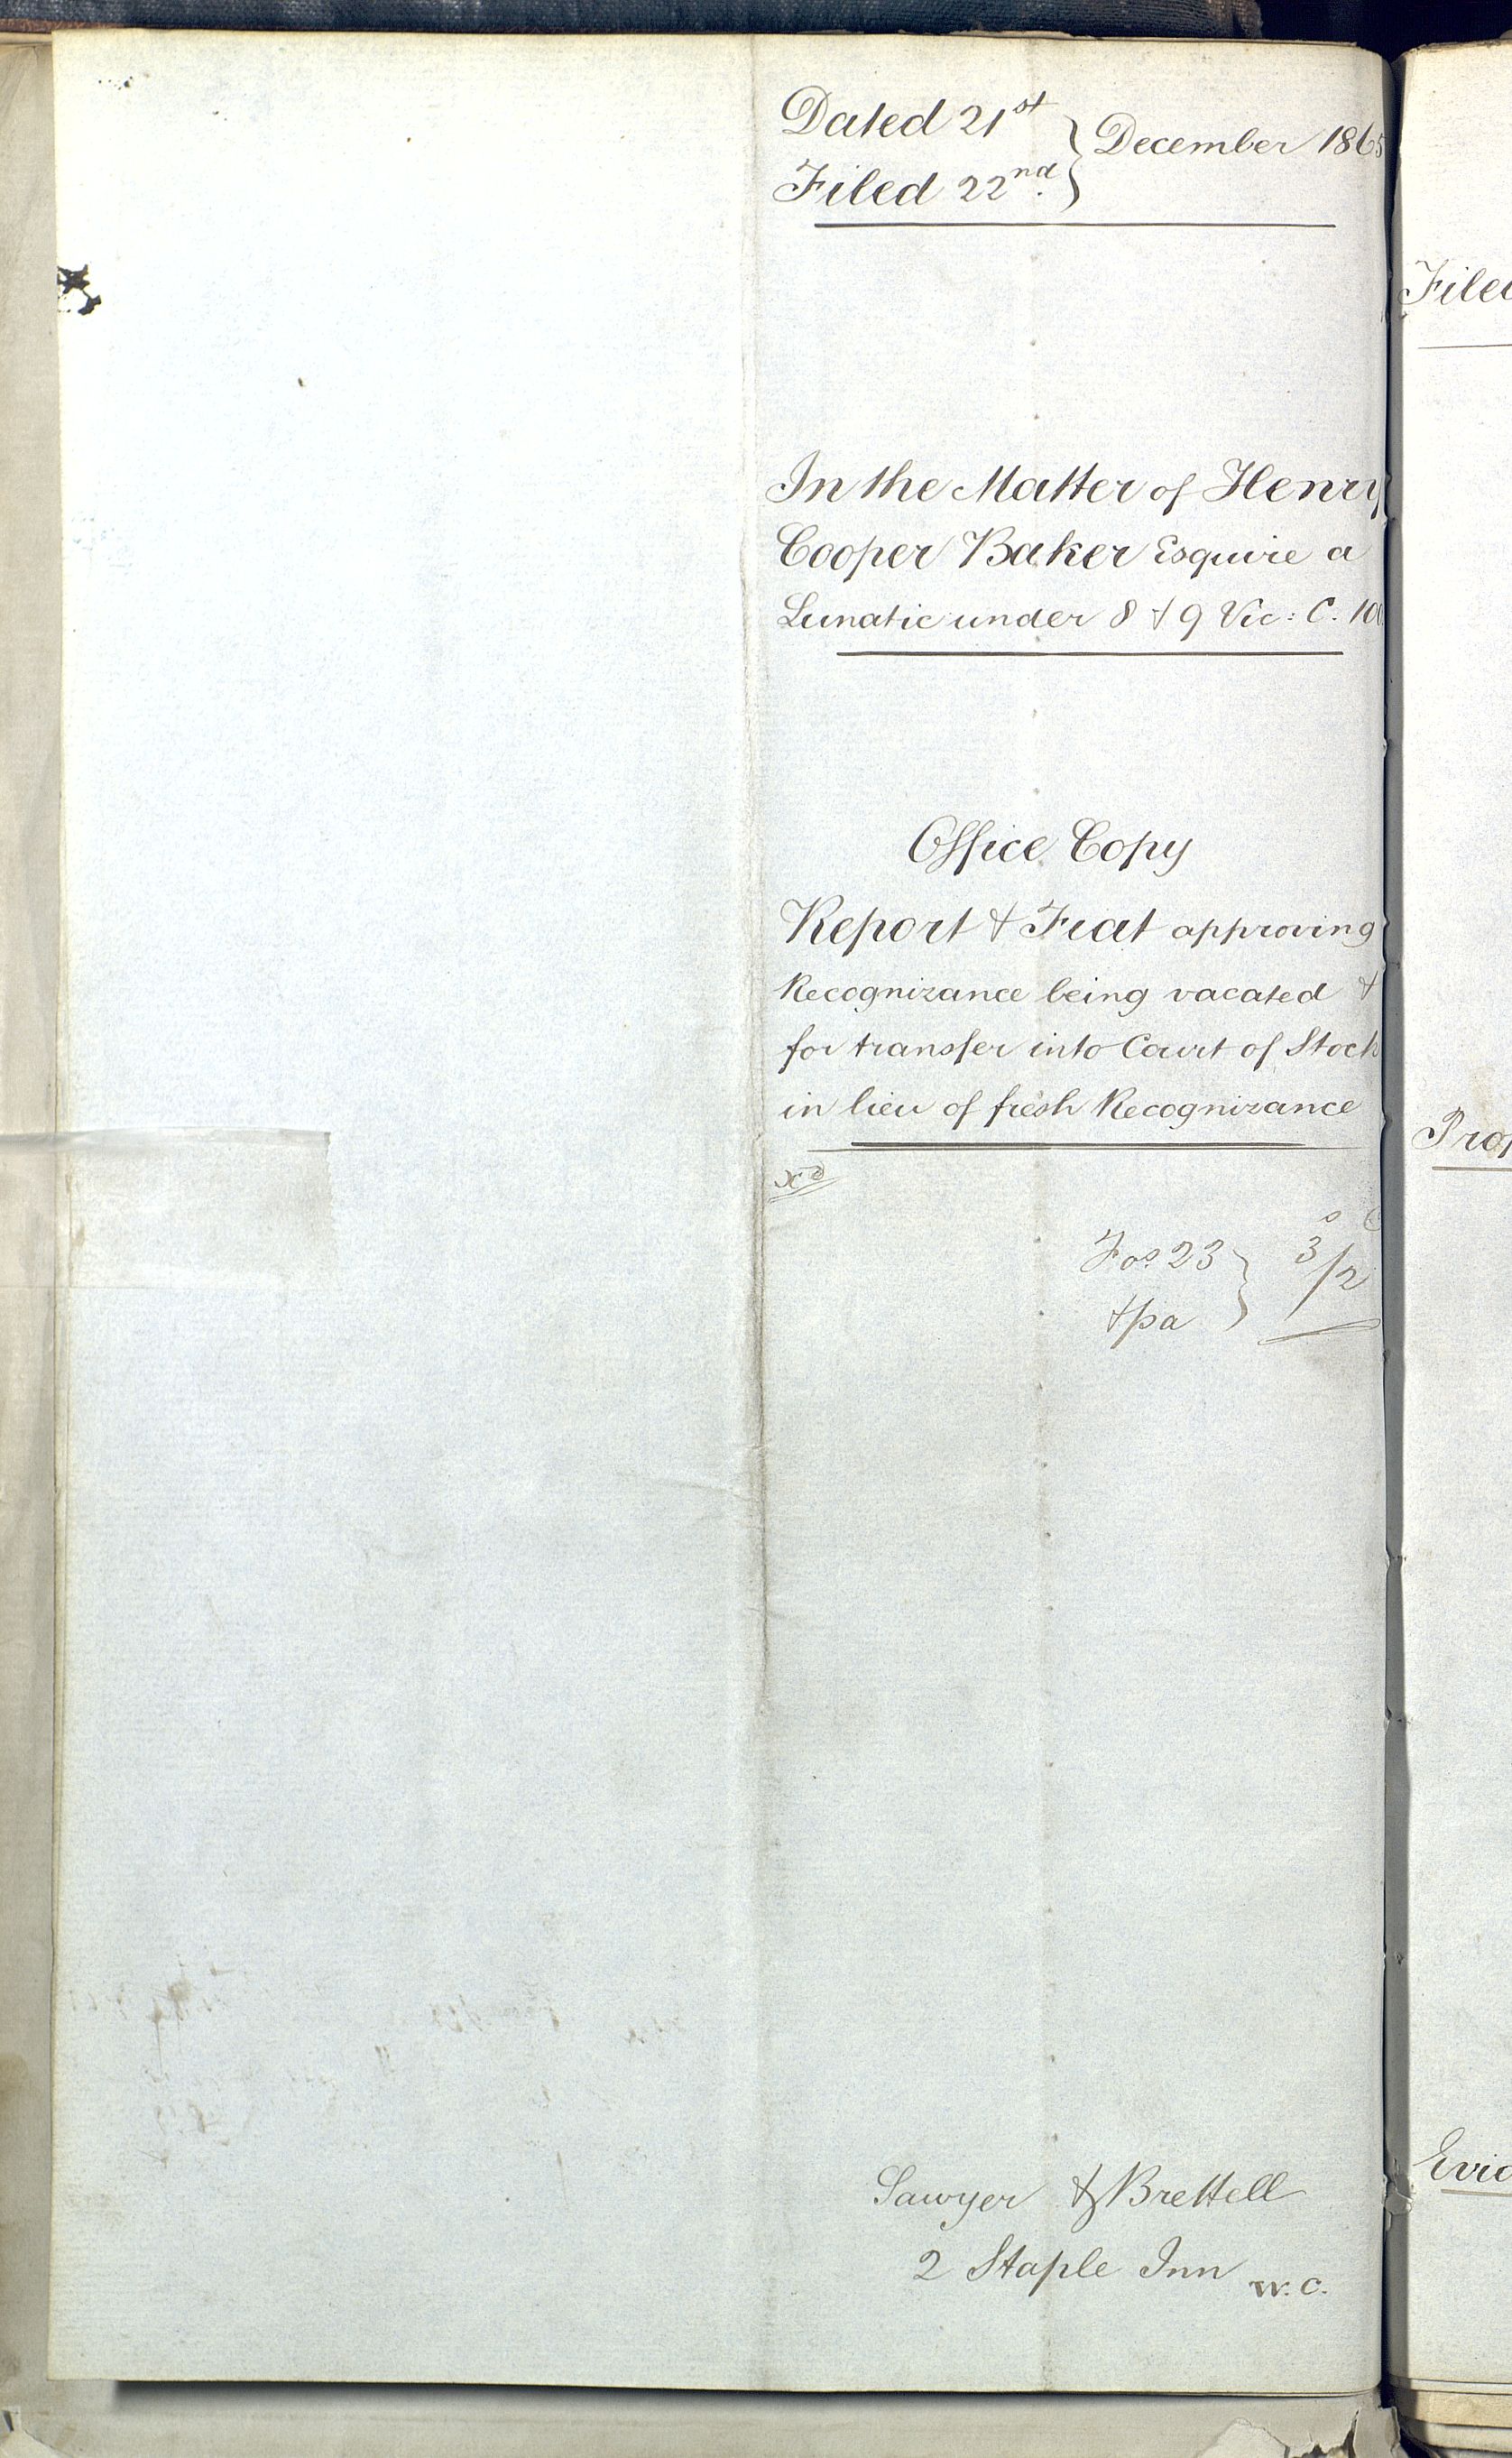 Dated 21st } December 1865
Filed 22nd.
In the Matter of Henry
Cooper Baker Esquire a
Lunatic under 8 & 9 Vic: C. 10
Office Copy
Report & Fiat approving
Recognizance being vacated &
for transfer into Court of Stock
in lieu of fresh Recognizance
xd
Fos. 23 } 3/2
& pa
Sawyer & Brettell
2 Staple Inn W.C.
Filed
Prop
Evid